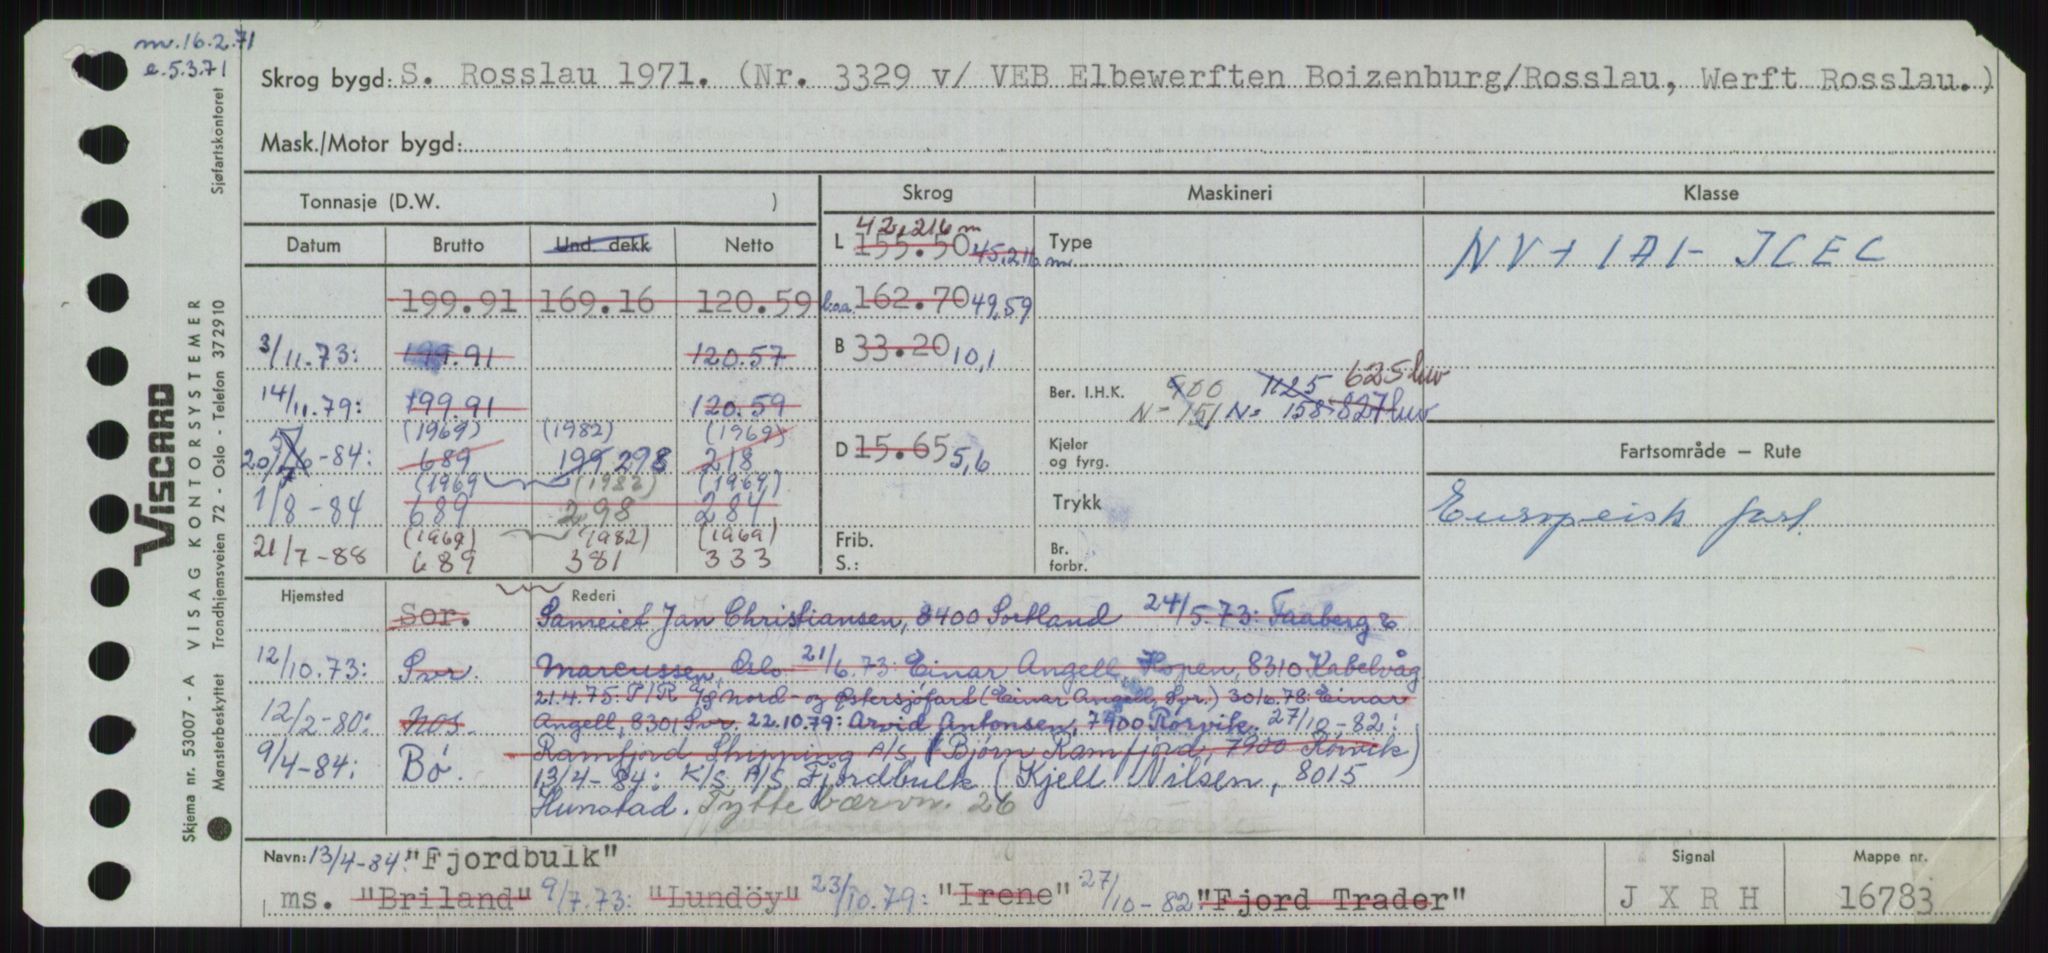 m. 16.2.71
e. 5.3.71
Skrog bygd: S. Rosslau 1971. (Nr. 3329 v/ VEB Elbewerften Boizenburg/Rosslau, Werft Rosslau.)
Mask./Motor bygd:
Tonnasje (D.W. ) Skrog Maskineri Klasse
Datum Brutto Und. dekk Netto
42,216 m
L 155.50 45,216 m Type NV + 1A1 - ICEC
199.91 169.16 120.59 l.oa. 162.70 49,59
3/11.73: 199.91 120.57 B 33.20 10,1
14/11.79: 199.91 120.59
Ber. I.H.K. 900 1125 625 kw
N = 151 N = 158 827 kw
(1969) (1982) (1969)
20/ -84: 689 199 298 218 D 15.65 5,6 Kjeler og fyrg. Fartsområde – Rute
(1969 (1982) (1969)
1/8 - 84 689 298 284 Trykk Europeisk fart.
(1969) (1982) (1969)
21/7 - 88 689 381 333 Frib. S.: Br. forbr.
Hjemsted Rederi
Sor. Sameiet Jan Christiansen, 8400 Sortland 24/5.73: Faaberg &
12/10.73: Svr. Marcussen, Oslo 21/6.73: Einar Angell, Hopen, 8310 Kabelvåg
21.4.75: P/R f/g Nord- og Østersjøfart (Einar Angell, Svr.) 30/6.78: Einar
12/2-80: NOS. Angell, 8301 Svr. 22.10.79: Arvid Antonsen, 7900 Rørvik. 27/10-82:
9/4-84: Bø. Ramfjord Shipping A/S, (Bjørn Ramfjord, 7900 Rørvik)
13/4-84: K/S A/S Fjordbulk (Kjell Nilsen, 8015
Hunstad. Tyttebærvn. 26
Navn: 13/4-84: "Fjordbulk" Signal Mappe nr.
ms. "Briland" 9/7.73: "Lundöy" 23/10.79: "Irene" 27/10-82: "Fjord Trader" JXRH 16783
VISCARD
Skjema nr. 53007 - A VISAG KONTORSYSTEMER
Mønsterbeskyttet Trondhjemsveien 72 - Oslo - Telefon 372910 Sjøfartskontoret